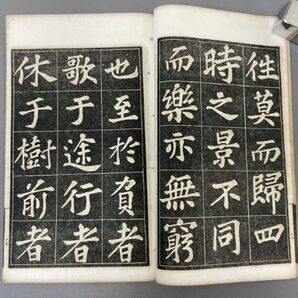 往莫而歸四
時之景不同
而樂亦無窮
也至於負者
歌于途行者
休于樹前者